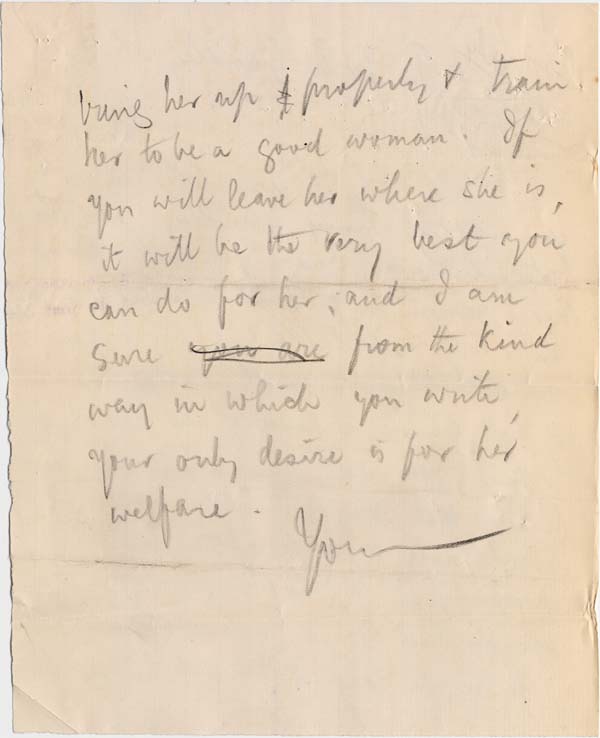 bring her up & properly & train
her to be a good woman. If
you will leave her where she is,
it will be the very best you
can do for her, and I am
sure you are from the kind
way in which you write,
your only desire is for her
welfare.
You